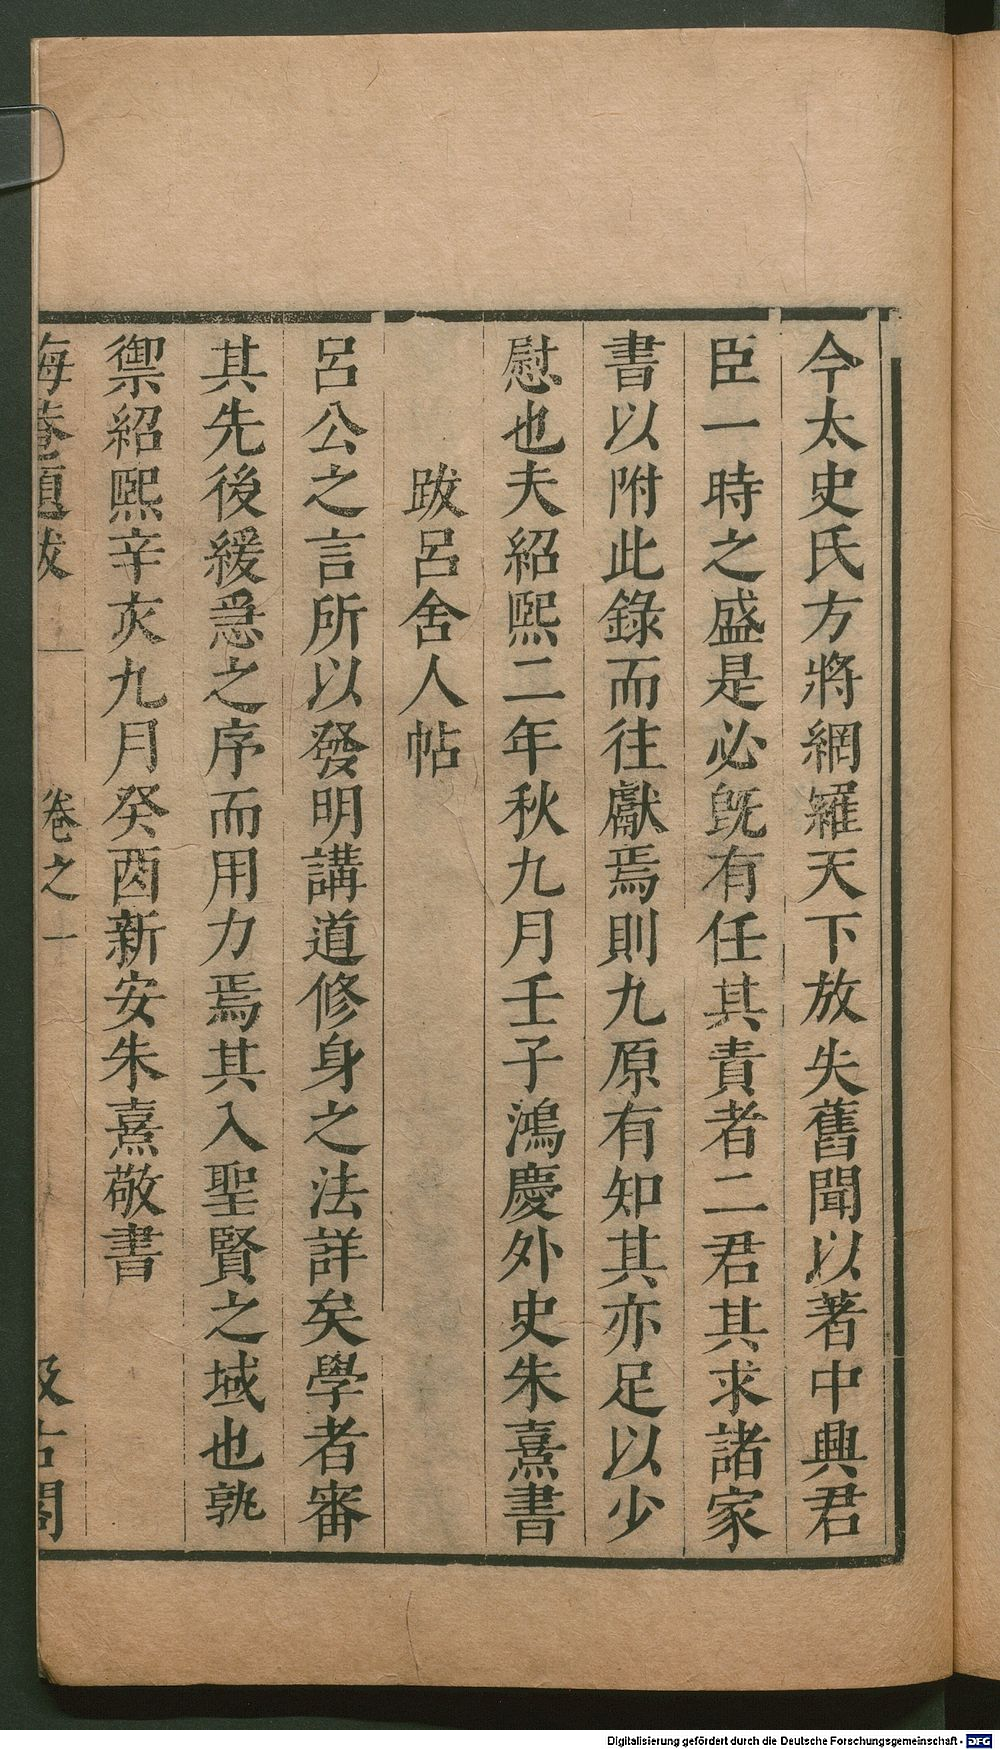 今太史氏方將網羅天下放失舊聞以著中興君
臣一時之盛是必旣有任其責者二君其求諸家
書以附此錄而往獻焉則九原有知其亦足以少
慰也夫紹熙二年秋九月壬子鴻慶外史朱熹書
跋呂舍人帖
呂公之言所以發明講道修身之法詳矣學者審
其先後緩急之序而用力焉其入聖賢之域也孰
禦紹熙辛亥九月癸酉新安朱熹敬書
晦菴題跋 卷之一 汲古閣
Digitalisierung gefördert durch die Deutsche Forschungsgemeinschaft - DFG